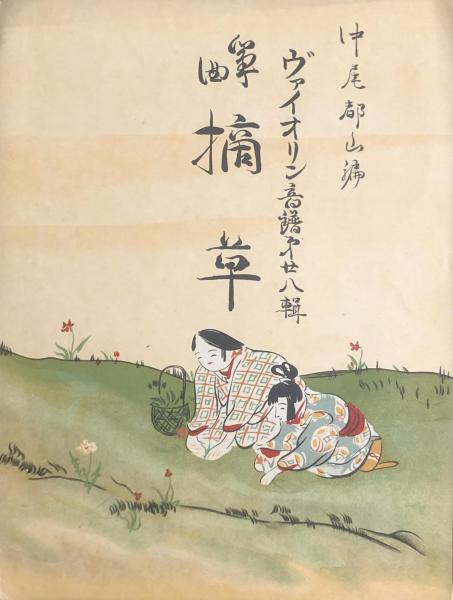 中尾都山編
ヴァイオリン音譜第廿八輯
箏曲
摘草